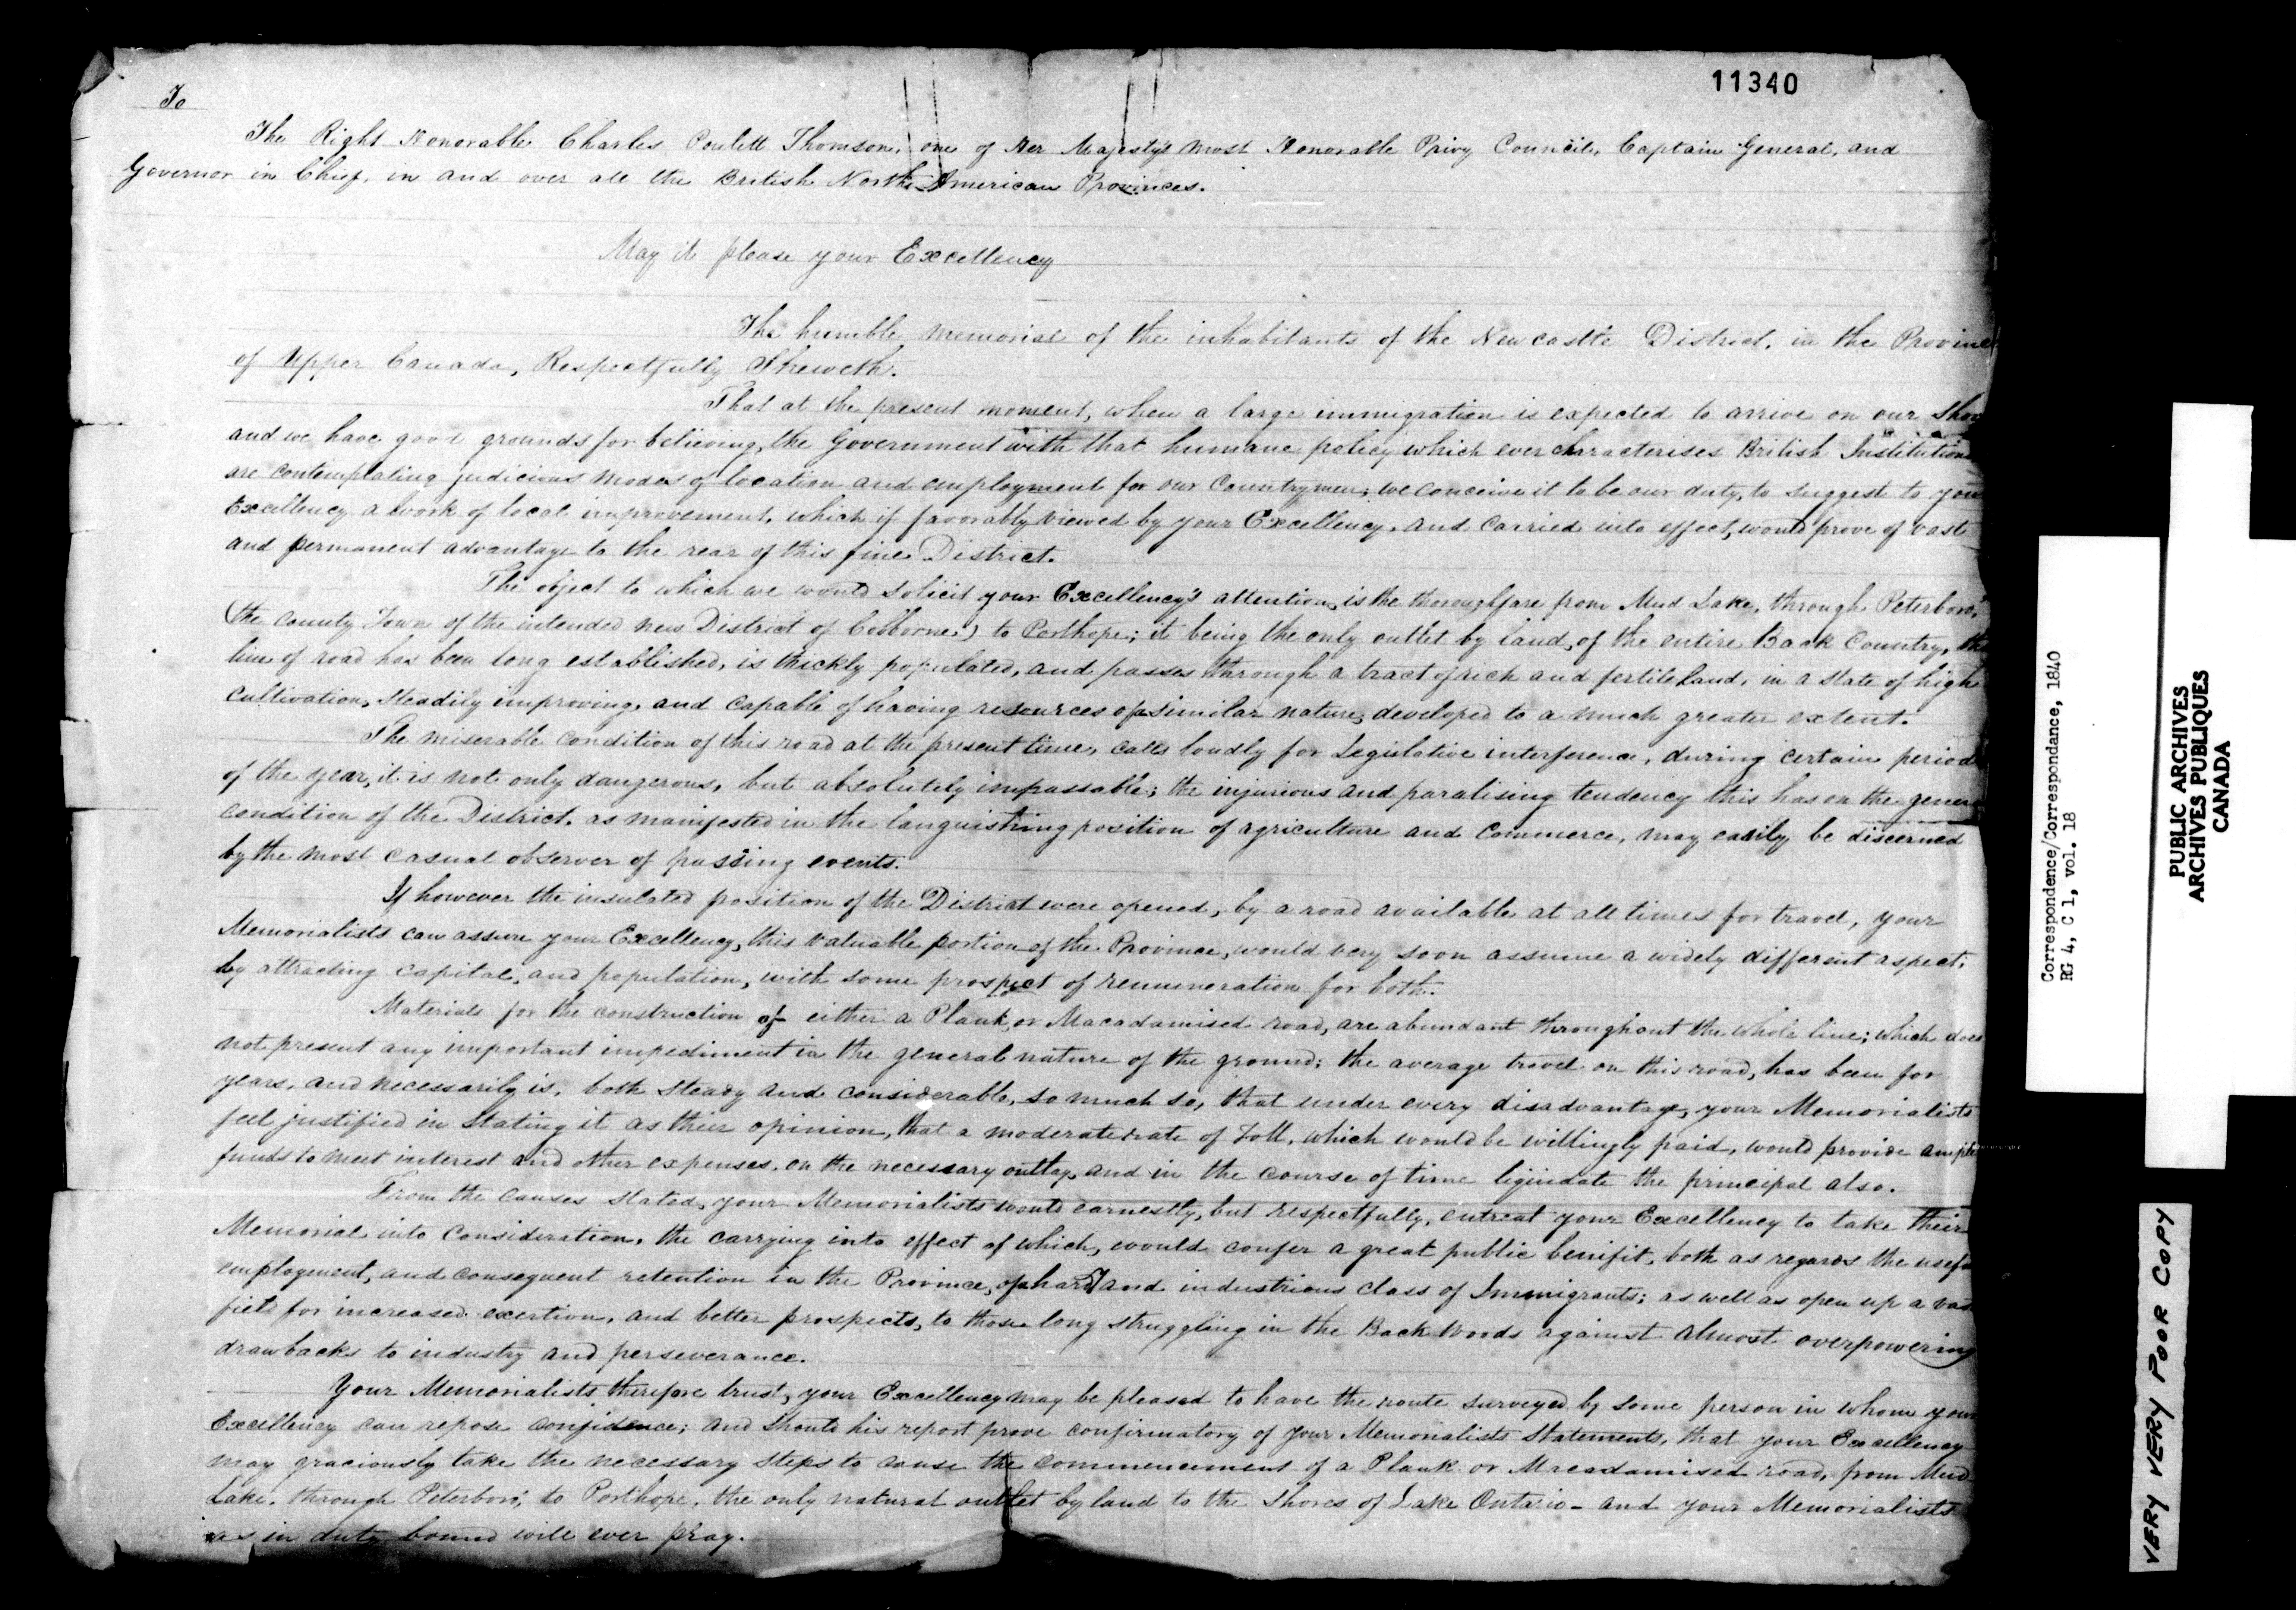 11340
To
The Right Honorable Charles Poulett Thomson, one of Her Majesty's most Honorable Privy Council, Captain General, and
Governor in Chief, in and over all the British North American Provinces.
May it please your Excellency
The humble memorial of the inhabitants of the Newcastle District, in the Provinc
of Upper Canada, Respectfully Sheweth.
That at the present moment, when a large immigration is expected to arrive on our Shor
and we have good grounds for believing, the Government with that humane policy which ever characterises British Institution
are contemplating judicious modes of location and employment for our Countrymen; we conceive it to be our duty, to suggest to you
Excellency a work of local improvement, which if favorably viewed by your Excellency, and carried into effect, would prove of vast
and permanent advantage to the rear of this fine District.
The object to which we would solicit your Excellency's attention, is the thoroughfare from Mud Lake, through Peterboro,
(the County Town of the intended new District of Colborne) to Porthope; it being the only outlet by land, of the entire Back Country, the
line of road has been long established, is thickly populated, and passes through a tract of rich and fertile land, in a state of high
cultivation, steadily improving, and capable of having resources of similar nature, developed to a much greater extent.
The miserable condition of this road at the present time, calls loudly for Legislative interference, during certain period
of the year, it is not only dangerous, but absolutely impassable; the injurious and paralising tendency this has on the gener
condition of the District, as manifested in the languishing position of agriculture and Commerce, may easily be discerned
by the most casual observer of passing events.
If however the insulated position of the District were opened, by a road available at all times for travel, your
Memorialists can assure your Excellency, this valuable portion of the Province, would very soon assume a widely different aspect,
by attracting capital, and population, with some prospect of remuneration for both.
Materials for the construction of either a Plank, or Macadamised road, are abundant throughout the whole line; which does
not present any important impediment in the general nature of the ground; the average travel on this road, has been for
years, and necessarily is, both steady and considerable, so much so, that under every disadvantage, your Memorialists
feel justified in stating it as their opinion, that a moderate rate of Toll, which would be willingly paid, would provide ample
funds to meet interest and other expenses, on the necessary outlay, and in the course of time liquidate the principal also.
From the causes stated, your Memorialists would earnestly, but respectfully, entreat your Excellency to take their
Memorial into Consideration, the carrying into effect of which, would confer a great public benifit, both as regards the usef
employment, and consequent retention in the Province, of hardy and industrious class of Immigrants; as well as open up a vas
field for increased exertion, and better prospects, to those long struggling in the Back Woods against almost overpowering
drawbacks to industry and perseverance.
Your Memorialists therefore trust, your Excellency may be pleased to have the route surveyed by some person in whom your
Excellency can repose confidence; and should his report prove confirmatory of your Memorialists Statements, that your Excellency
may graciously take the necessary steps to cause the commencement of a Plank or Macadamised road, from Mud
Lake, through Peterboro', to Porthope, the only natural outlet by land to the Shores of Lake Ontario - and your Memorialists
as in duty bound will ever pray.
Correspondence/Correspondance, 1840
RG 4, C 1, vol. 18
PUBLIC ARCHIVES
ARCHIVES PUBLIQUES
CANADA
VERY VERY POOR COPY